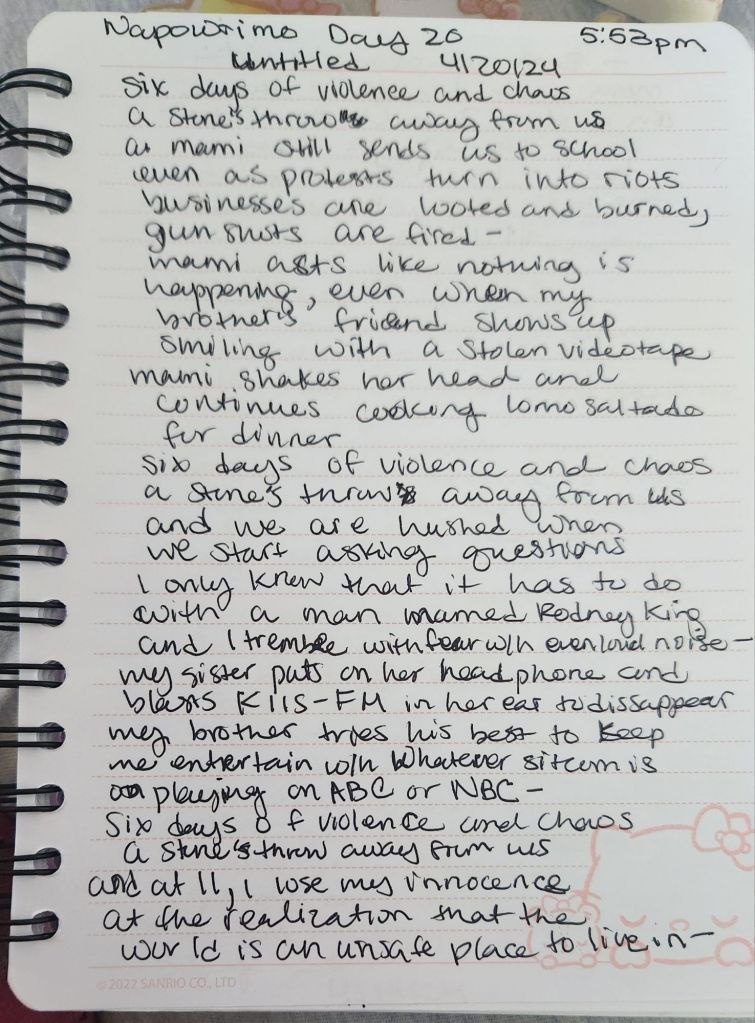 Napowrimo Day 20 5:53pm
Untitled 4/20/24
six days of violence and chaos
a stone's throw away from us
as mami still sends us to school
even as protests turn into riots
businesses are looted and burned,
gun shots are fired -
mami acts like nothing is
happening, even when my
brother's friend shows up
smiling with a stolen videotape
mami shakes her head and
continues cooking lomo saltado
for dinner
six days of violence and chaos
a stone's throw away from us
and we are hushed when
we start asking questions
I only know that it has to do
with a man named Rodney King
and I tremble with fear w/h every loud noise -
my sister puts on her headphone and
blasts KIIS-FM in her ear to dissappear
my brother tries his best to keep
me entertain w/h whatever sitcom is
playing on ABC or NBC -
six days of violence and chaos
a stone's throw away from us
and at 11, I lose my innocence
at the realization that the
world is an unsafe place to live in -
©2022 SANRIO CO., LTD